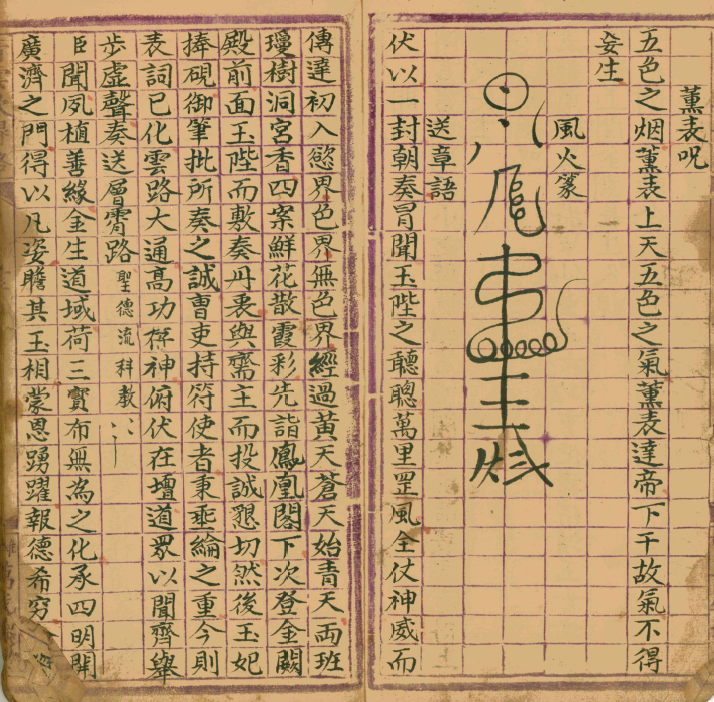 薰表呪
五色之烟薰表上天五色之氣薰表達帝下干故氣不得
妄生
風火篆
送章語
伏以一封朝奏冒聞玉陛之聼聰萬里罡風全仗神威而
傳達初入慾界色界無色界經過黃天蒼天始青天兩班
瓊樹洞宮香四案鮮花散霞彩先詣鳳凰閣下次登金闕
殿前面玉陛而敷奏丹衷與齋主而投誠懇切然後玉妃
捧硯御筆批所奏之誠曹吏持符使者秉乖綸之重今則
表詞已化雲路大通高功存神俯伏在壇道眾以聞齊舉
步虛聲奏送層霄路聖德流科教
臣聞夙植善緣金生道域荷三寳布無為之化承四明開
廣濟之門得以凡姿瞻其玉相蒙恩踴躍報德希穷